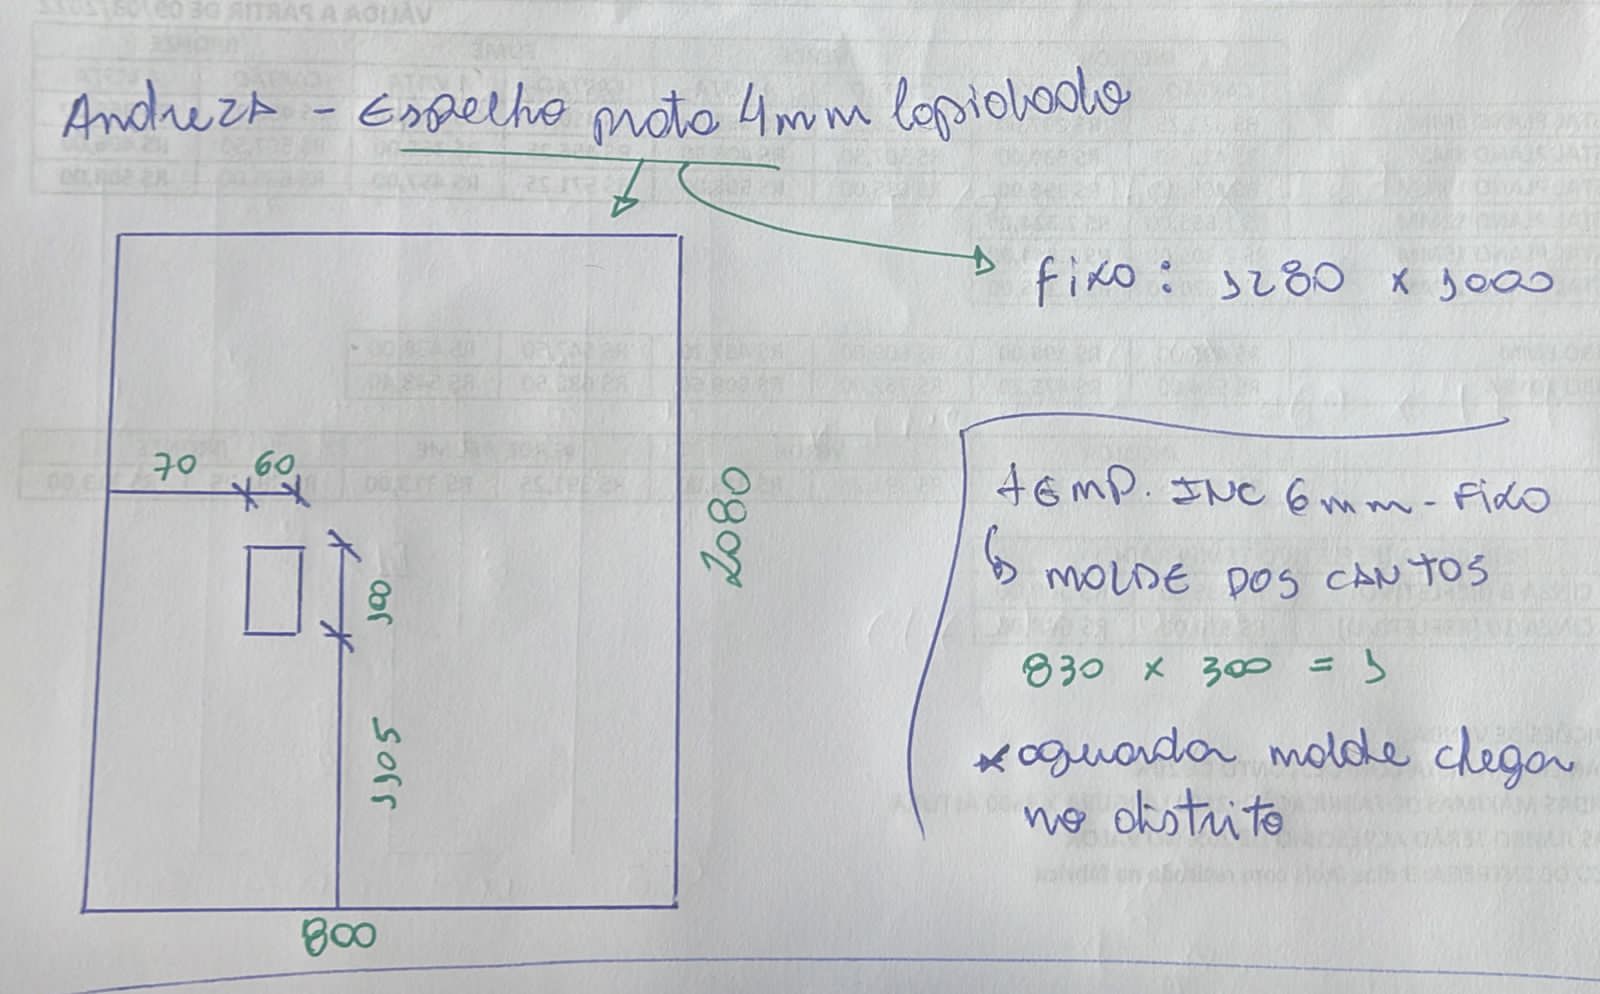 Andreza - Espelho prata 4mm lapidado
fixo: 1280 x 1000
70 60
100
2080
1105
800
TEMP. INC 6mm - FIXO
MOLDE DOS CANTOS
830 x 300 = 1
* aguarda molde chegar
no distrito